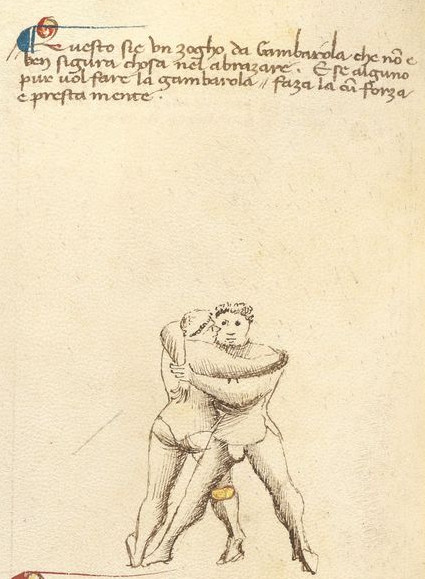 Questo sie vn zogho da Gambarola che nõ e
ben sigura chosa nel abrazare. E se alguno
pur uol fare la gambarola // faza la cũ forza
e presta mente.